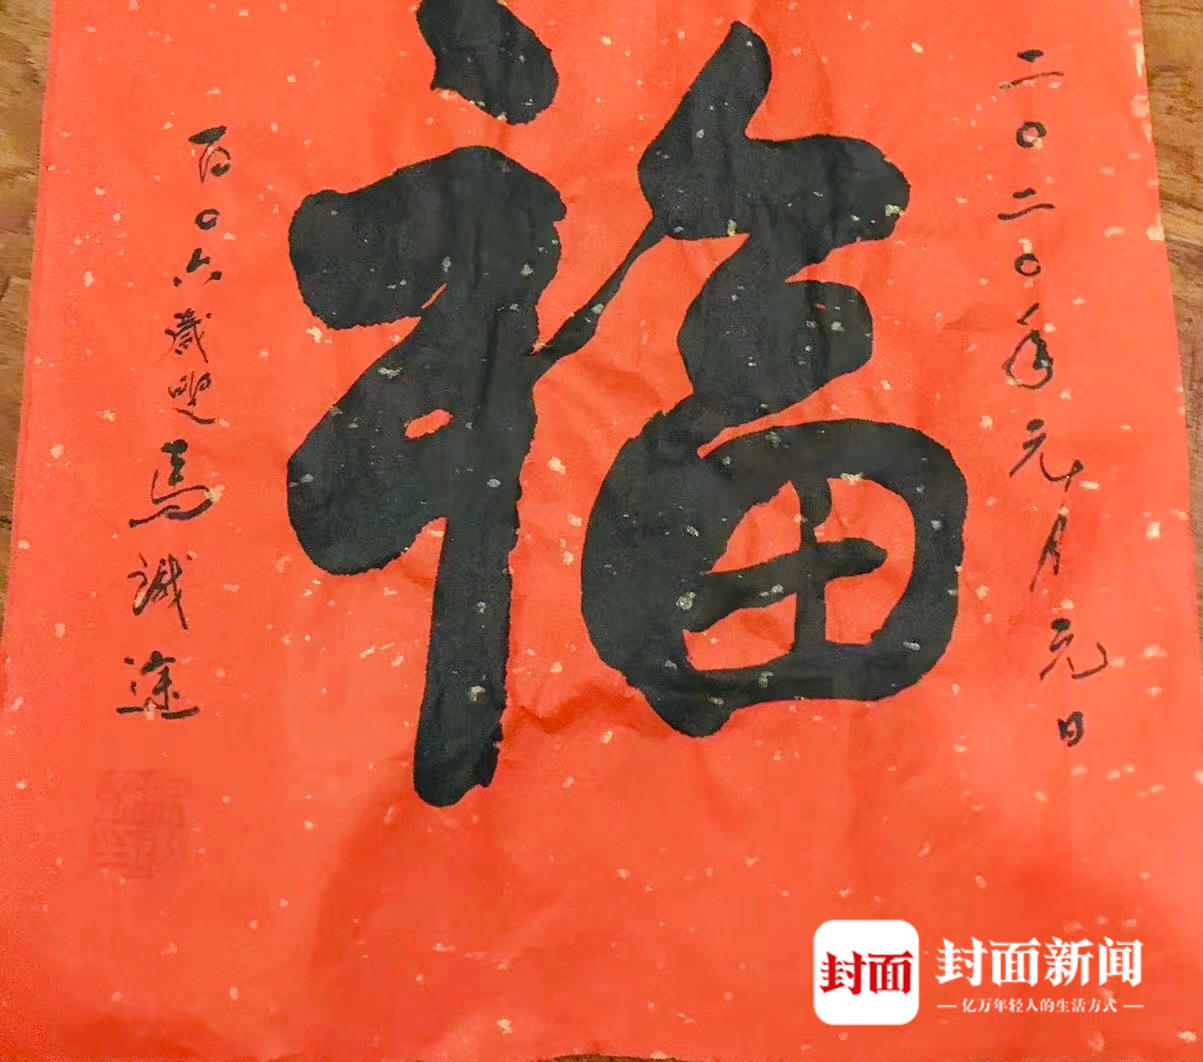 二〇二〇年元月元日
福
百〇六歲叟馬識途
封面
封面新闻
亿万年轻人的生活方式